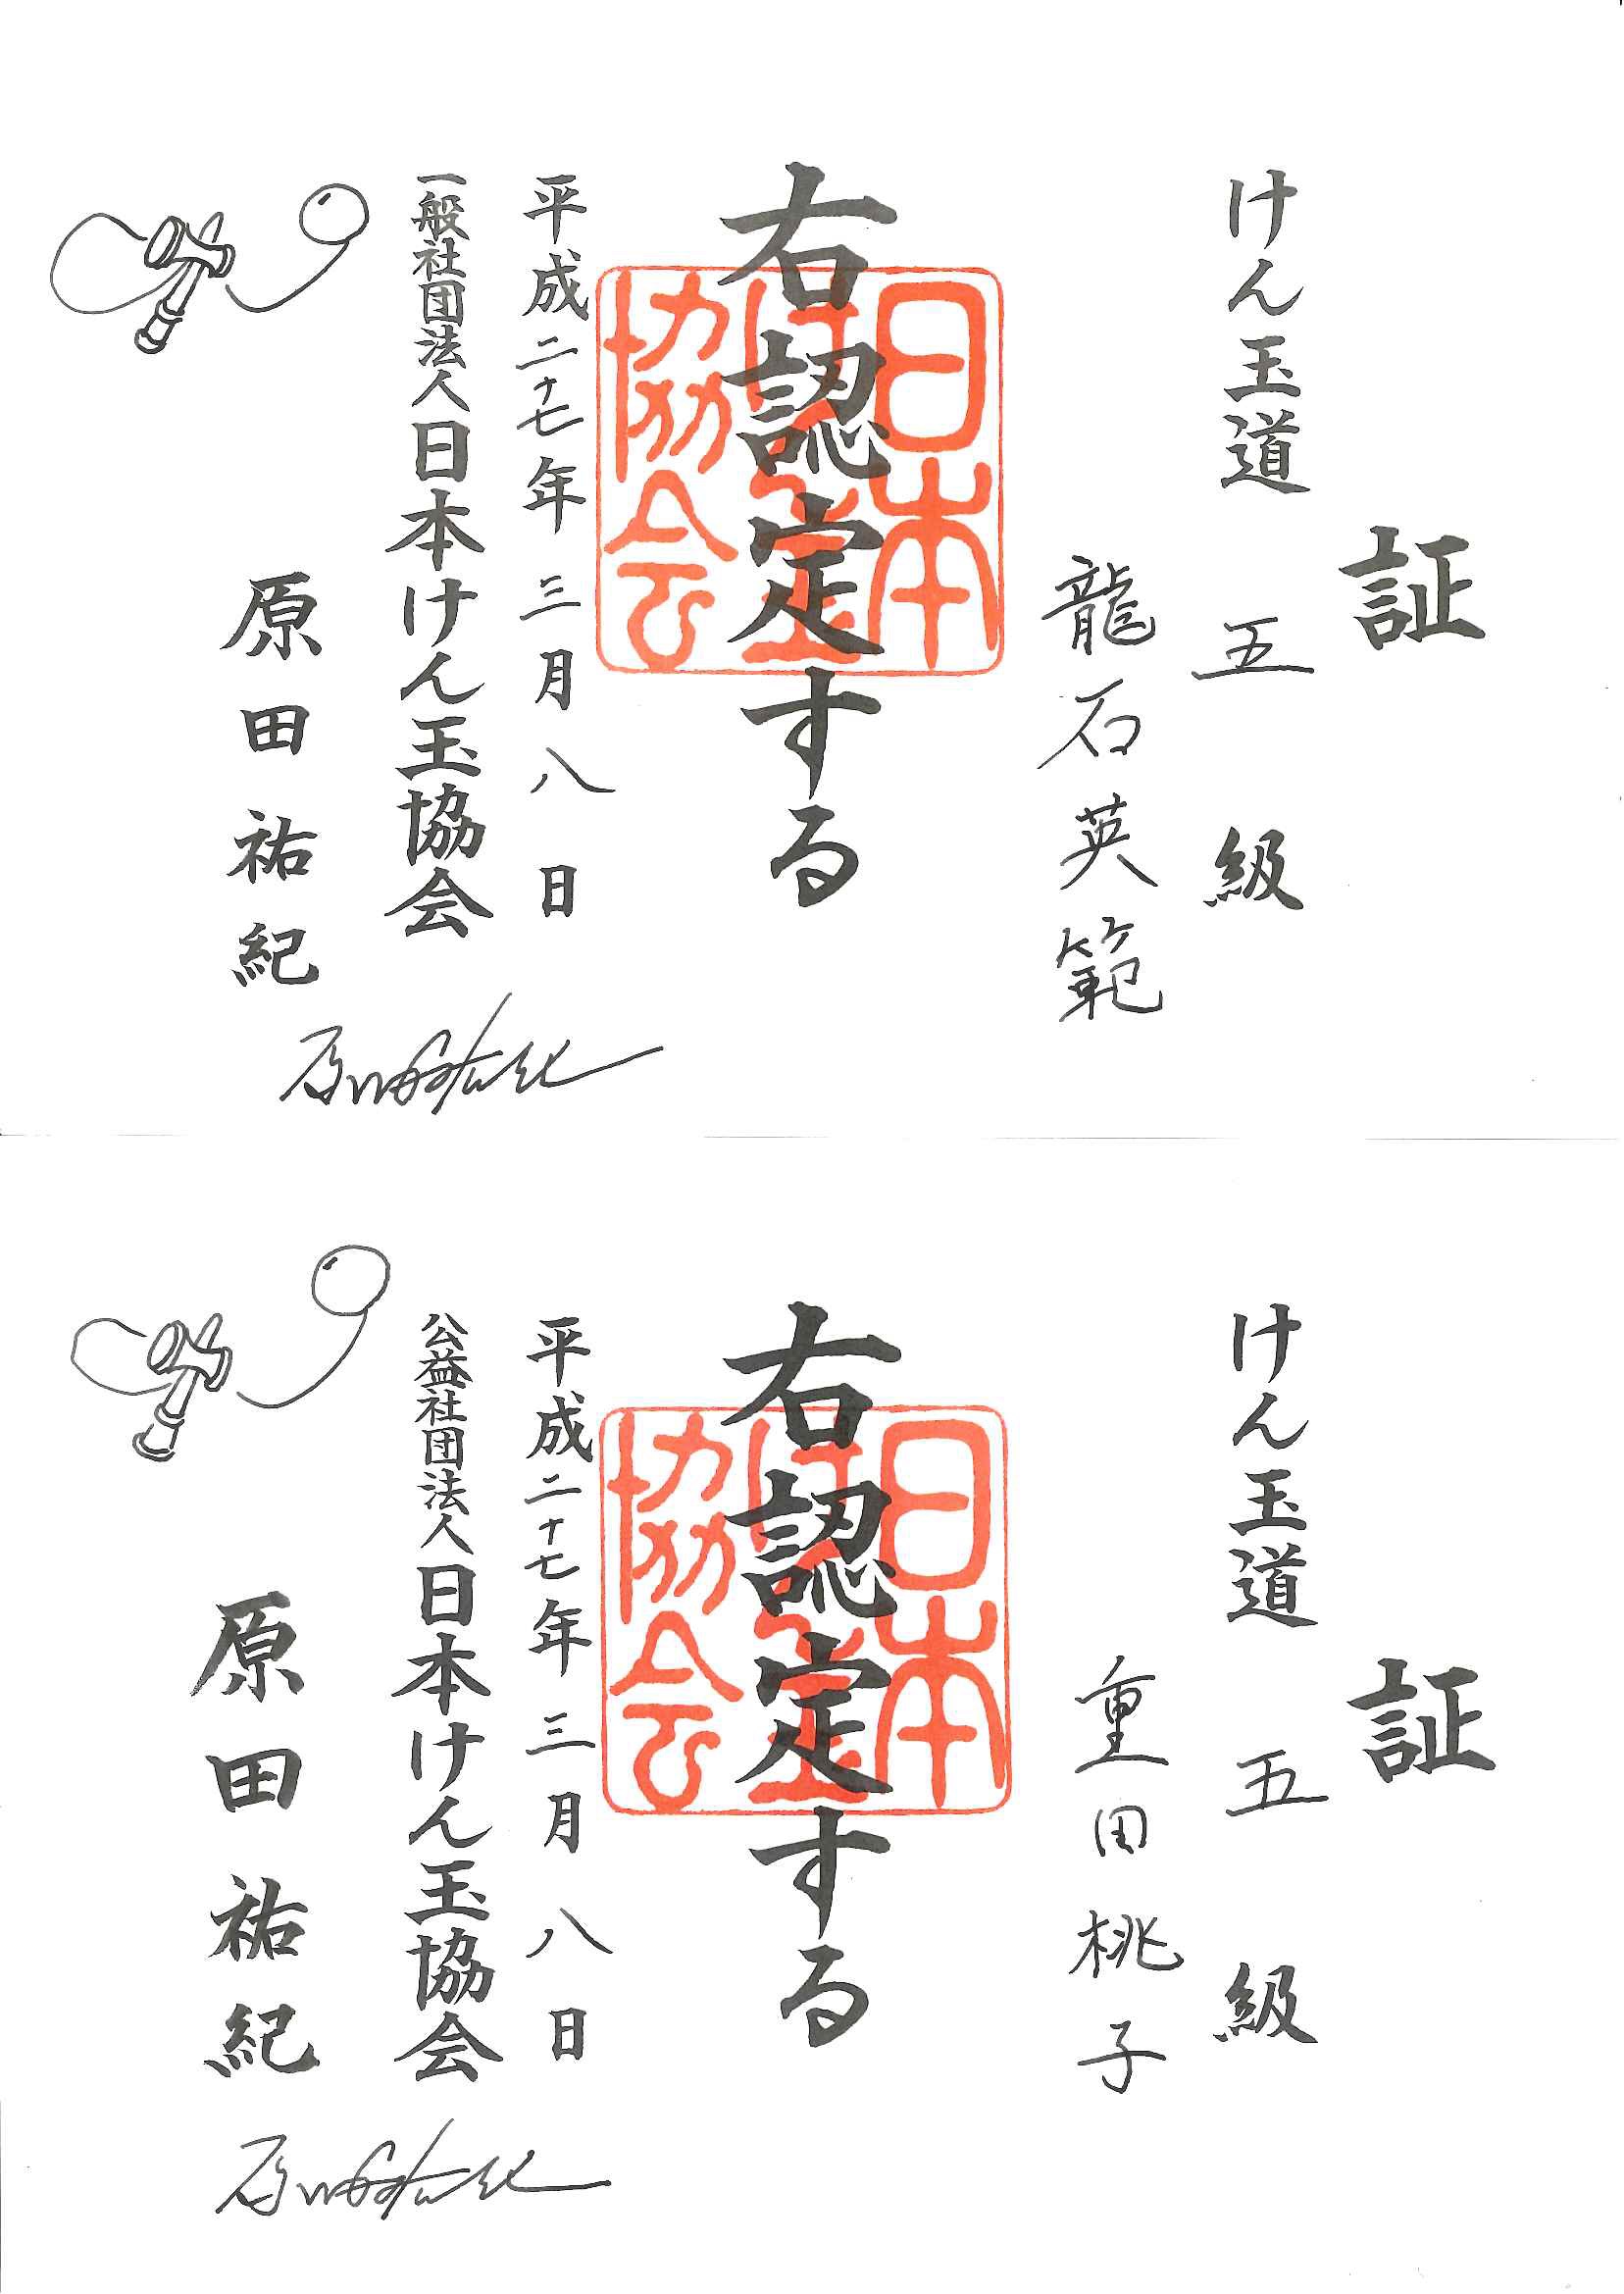 証
けん玉道 五級
龍石英範
右認定する
日本けん玉協会
平成二十七年三月八日
一般社団法人日本けん玉協会
原田祐紀
原田祐紀
証
けん玉道 五級
重田桃子
右認定する
日本けん玉協会
平成二十七年三月八日
公益社団法人日本けん玉協会
原田祐紀
原田祐紀